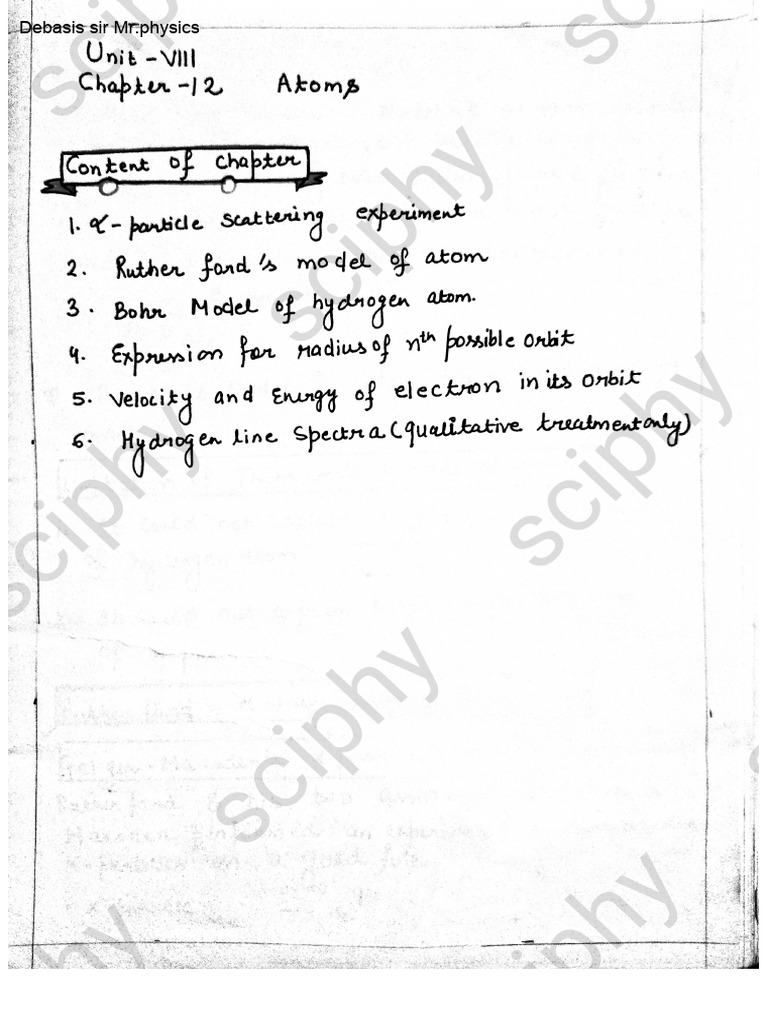 Debasis sir Mr.physics
Unit -VIII
Chapter -12 Atoms
Content of chapter
1. α-particle scattering experiment
2. Ruther ford's model of atom
3. Bohr Model of hydrogen atom.
4. Expression for radius of nth possible orbit
5. Velocity and Energy of electron in its orbit
6. Hydrogen line spectra (qualitative treatment only)
sciphy
sciphy
sciphy
sciphy
sciphy
sciphy
sciphy
sciphy